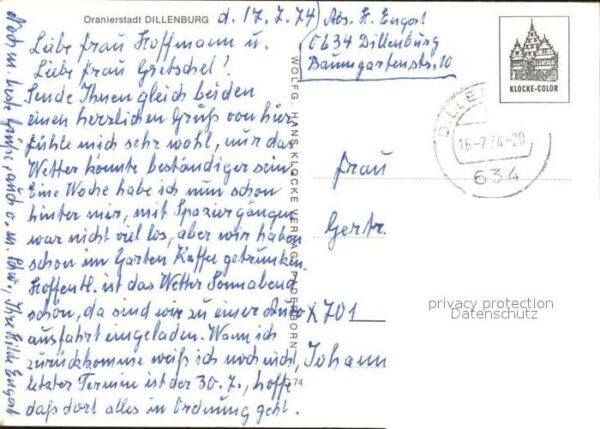 Oranierstadt DILLENBURG d. 17.7.74
Liebe Frau Hoffmann u.
Liebe Frau Gretschel!
Sende Ihnen gleich beiden
einen herzlichen Gruß von hier,
fühle mich sehr wohl, nur das
Wetter könnte beständiger sein.
Eine Woche habe ich nun schon
hinter mir, mit Spaziergängen
war nicht viel los, aber wir haben
schon im Garten Kaffee getrunken.
Hoffentl. ist das Wetter Sonnabend
schön, da sind wir zu einer Auto
ausfahrt eingeladen. Wann ich
zurückkomme weiß ich noch nicht,
letzter Termin ist der 30.7., hoffe
daß dort alles in Ordnung geht.
Noch m. beste Grüße, auch v. m.
Ihre Hilde Engort
WOLFG. HANS KLOCKE VERLAG PADERBORN
74
Abs. H. Engort
0634 Dillenburg
Baumgartenstr. 10
KLOCKE-COLOR
DILLEN
16-7.74-20
634
Frau
Gertr.
X 701
Johann
privacy protection
Datenschutz